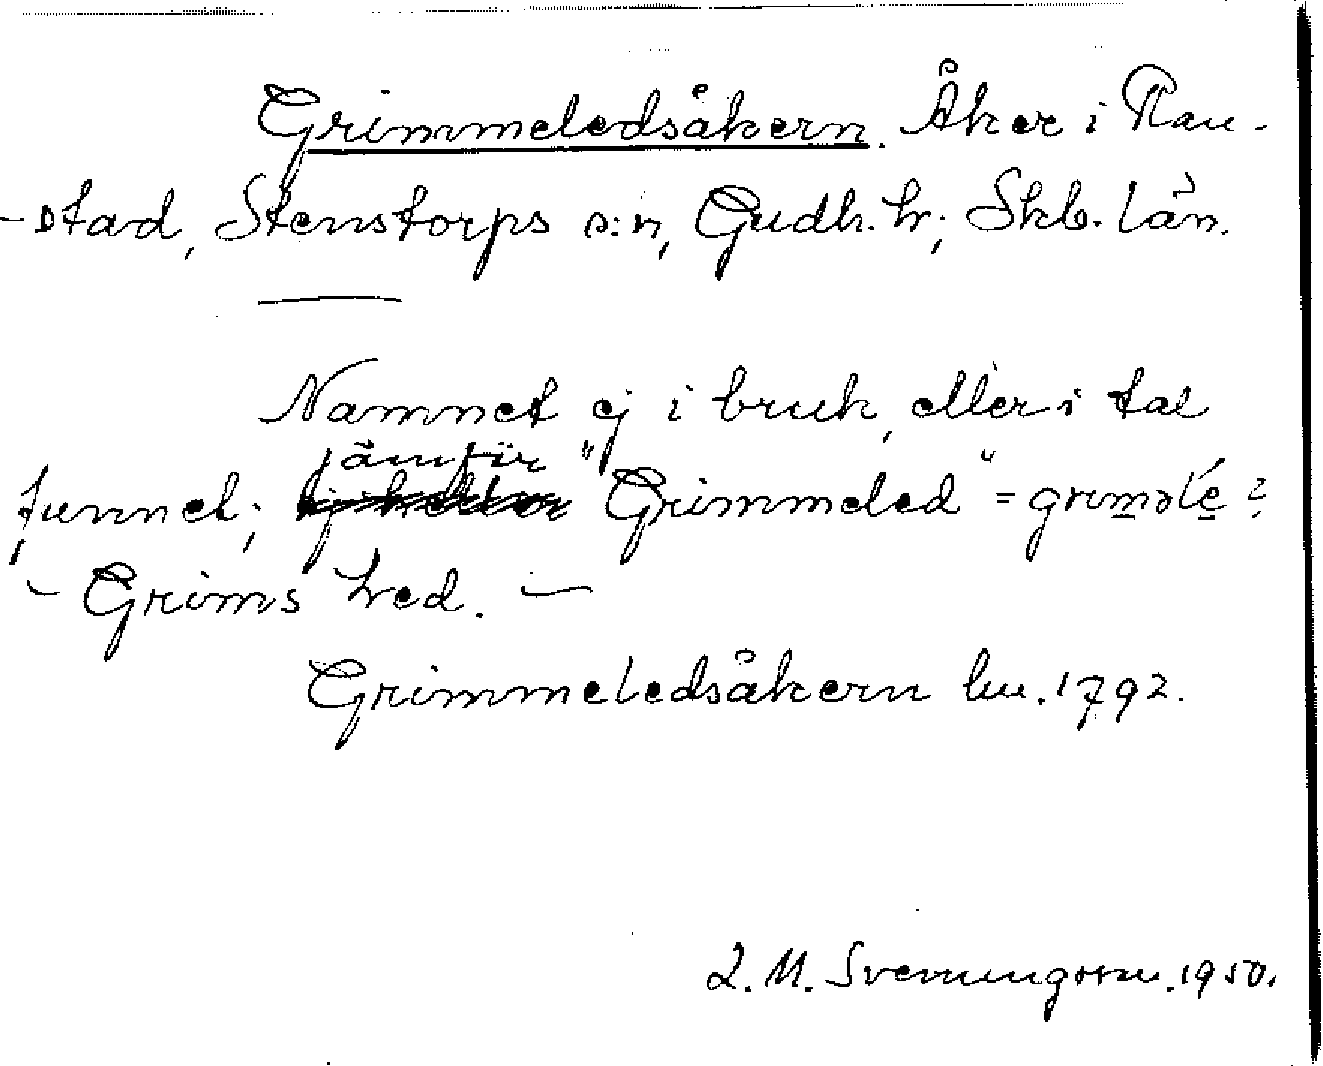 Grimmeledsåkern. Åker i Rau-
-stad, Stenstorps s:n, Gudh. hr; Skb. län.
Namnet ej i bruk, eller i tal
jämför
funnet; "Grimmeled" =
- Grims hed. -
Grimmeledsåkern lm. 1792.
L. M. Svenungsson. 1950.